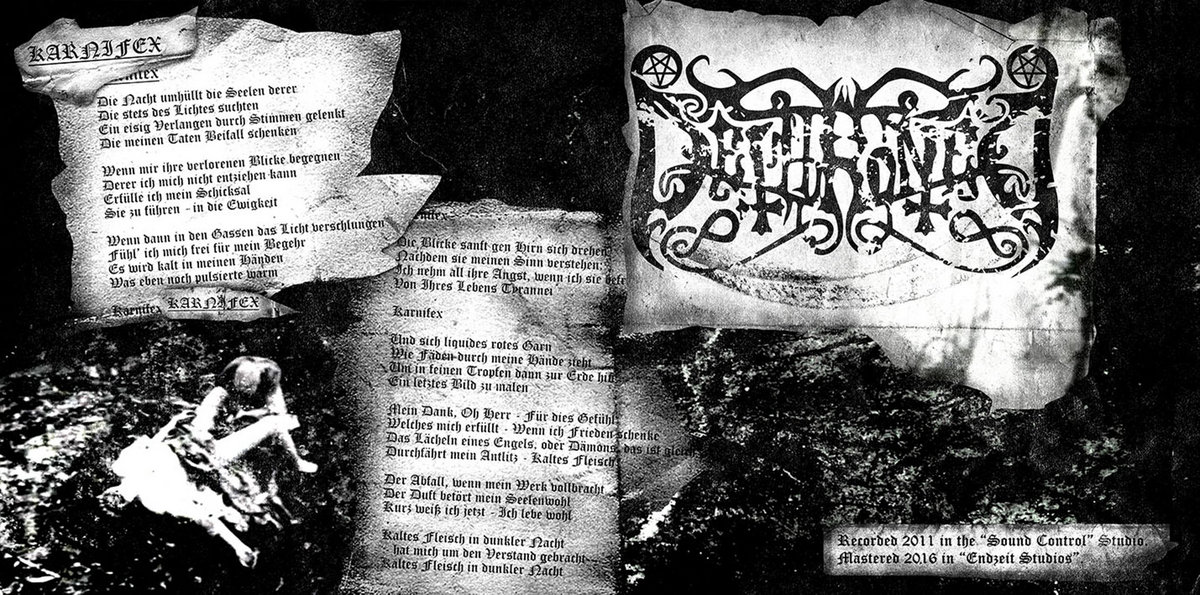 KARNIFEX
Karnifex
Die Nacht umhüllt die Seelen derer
Die stets des Lichtes suchten
Ein eisig Verlangen durch Stimmen gelenkt
Die meinen Taten Beifall schenken
Wenn mir ihre verlorenen Blicke begegnen
Derer ich mich nicht entziehen kann
Erfülle ich mein Schicksal
Sie zu führen - in die Ewigkeit
Wenn dann in den Gassen das Licht verschlungen
Fühl' ich mich frei für mein Begehr
Es wird kalt in meinen Händen
Was eben noch pulsierte warm
Karnifex KARNIFEX
Karnifex
Die Blicke sanft gen Hirn sich drehen
Nachdem sie meinen Sinn verstehen;
Ich nehm all ihre Angst, wenn ich sie
Von Ihres Lebens Tyrannei
Karnifex
Und sich liquides rotes Garn
Wie Fäden durch meine Hände zieht
Um in feinen Tropfen dann zur Erde
Ein letztes Bild zu malen
Mein Dank, Oh Herr - Für dies Gefühl
Welches mich erfüllt - Wenn ich Frieden schenke
Das Lächeln eines Engels, oder Dämons, das ist gleich
Durchfährt mein Antlitz - Kaltes Fleisch
Der Abfall, wenn mein Werk vollbracht
Der Duft betört mein Seelenwohl
Kurz weiß ich jetzt - Ich lebe wohl
Kaltes Fleisch in dunkler Nacht
hat mich um den Verstand gebracht
Kaltes Fleisch in dunkler Nacht
Recorded 2011 in the "Sound Control" Studio.
Mastered 2016 in "Endzeit Studios".